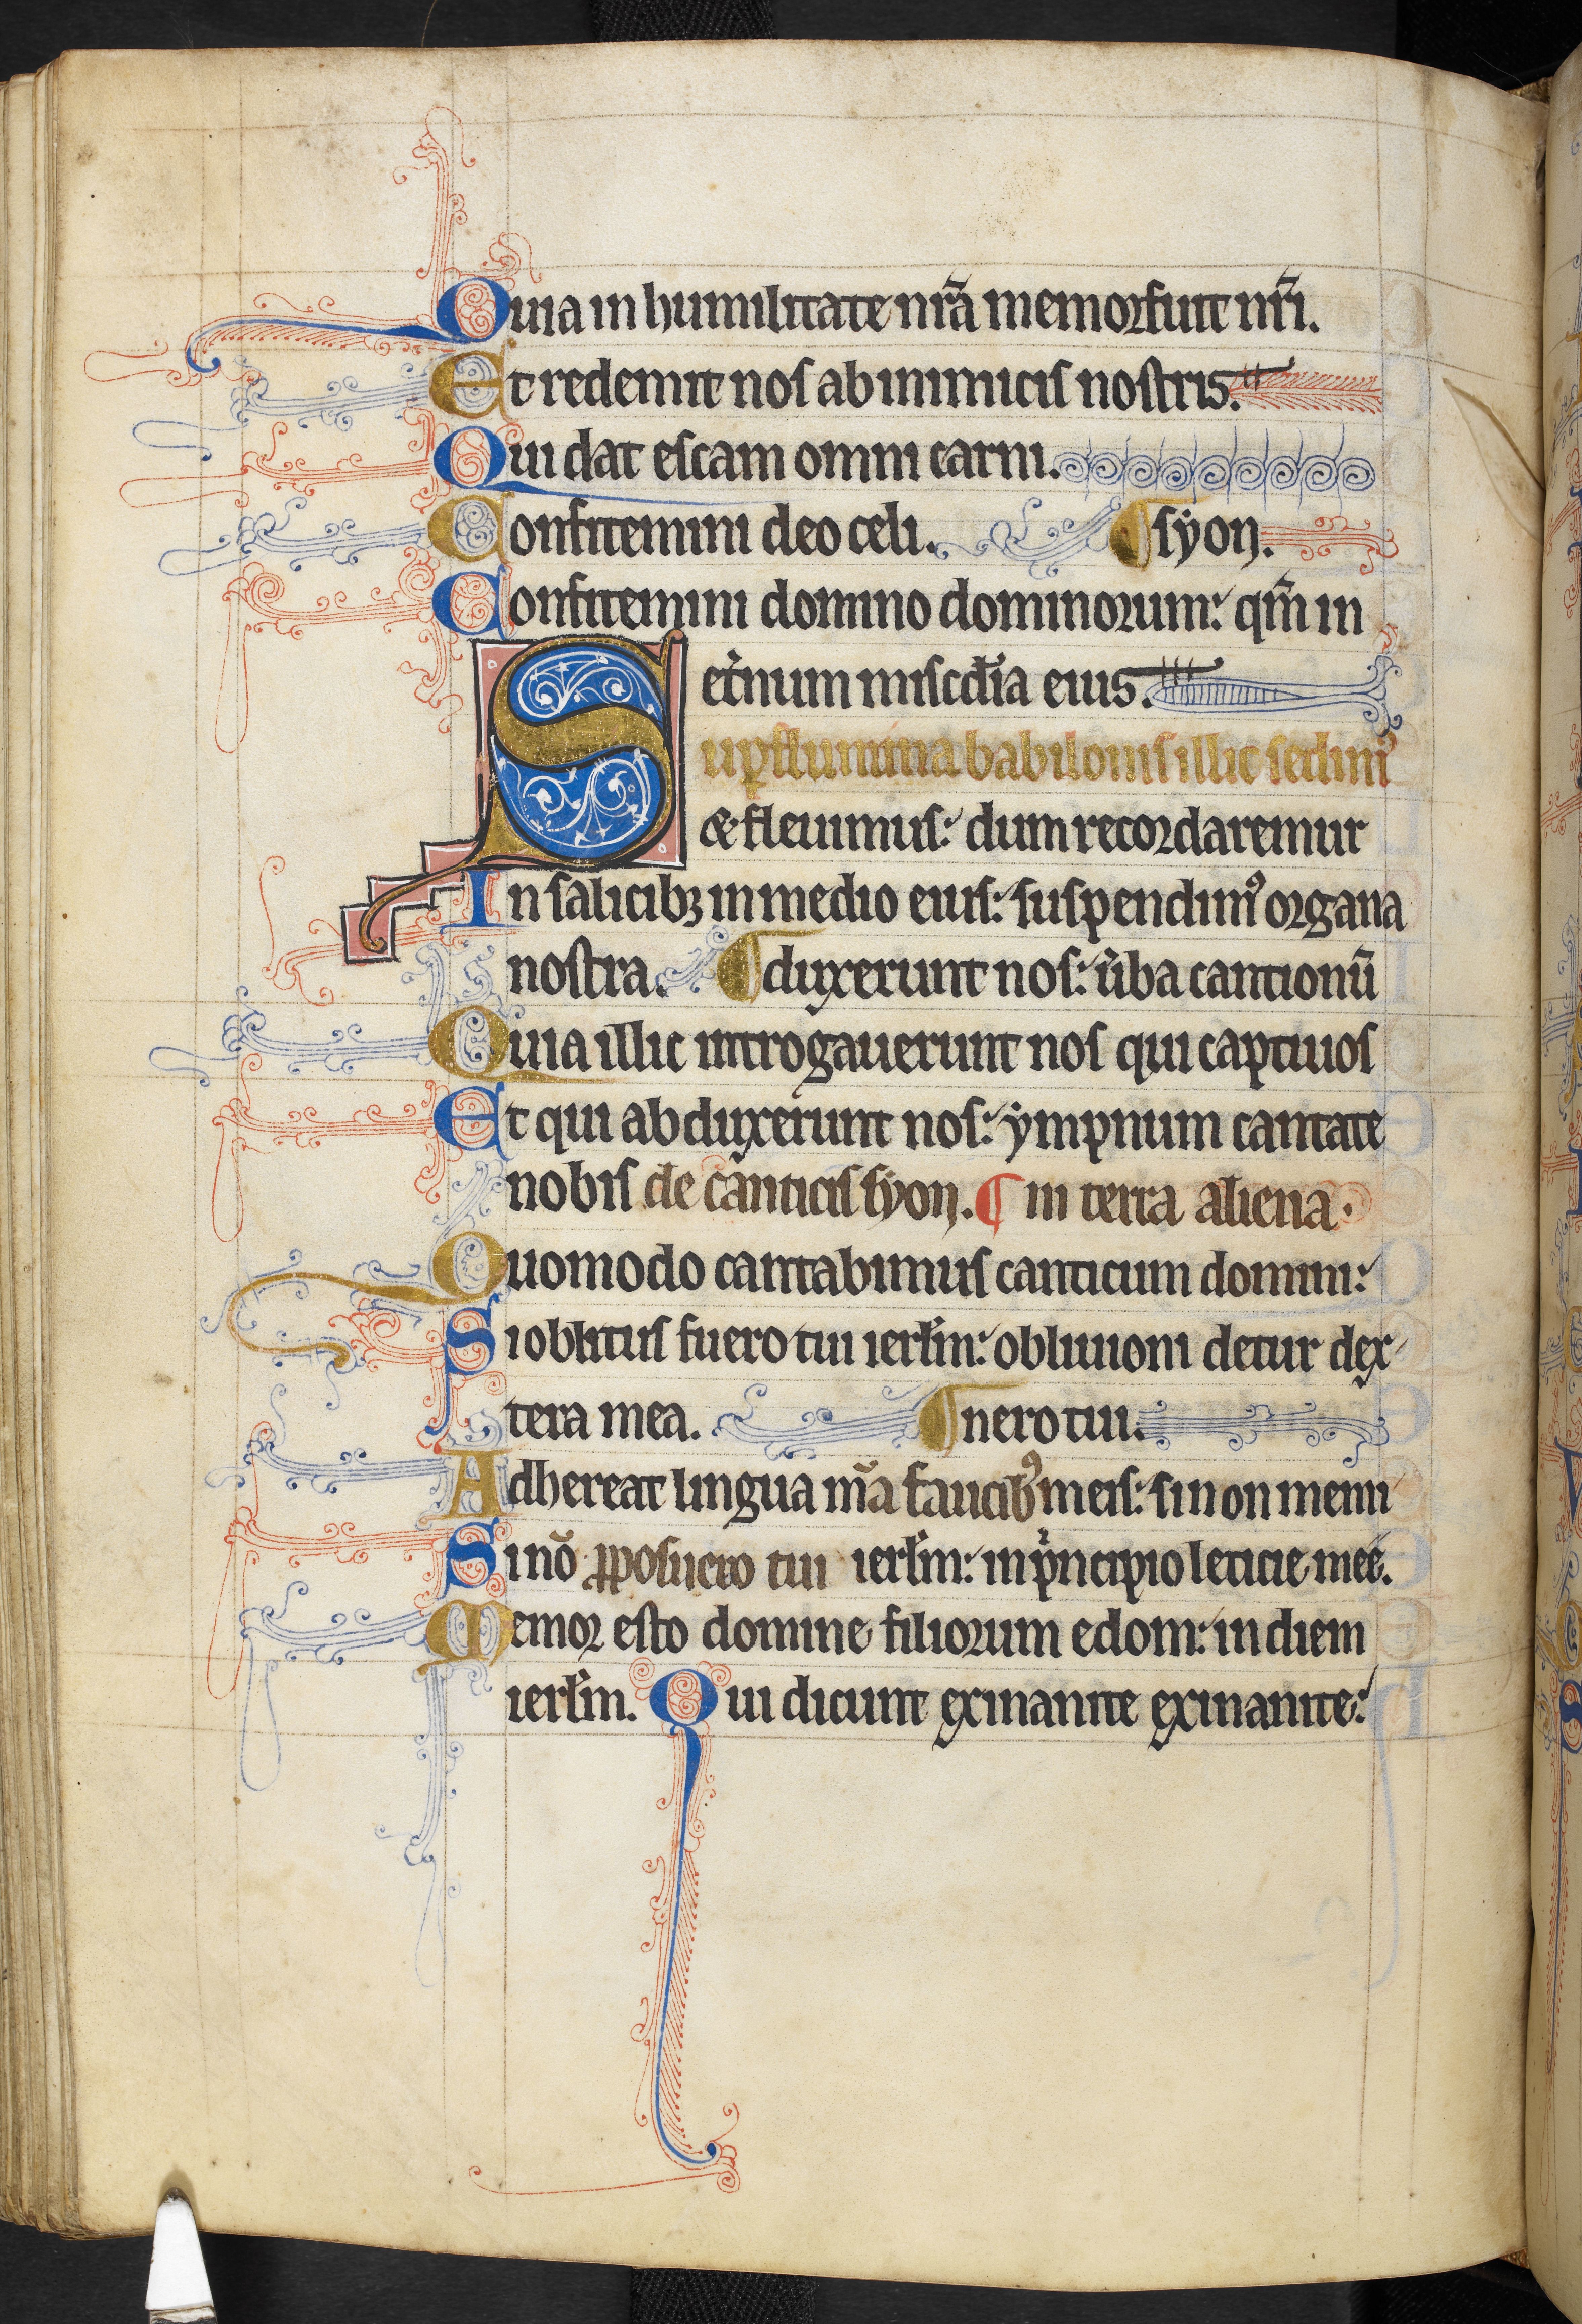 Quia in humilitate nr̄a memor fuit nr̄i.
Et redemit nos ab inimicis nostris.
Qui dat escam omni carni.
Confitemini deo celi. ¶ syon.
Confitemini domino dominorum: qm̄ in
et̾num mis̄cdīa eius.
Sup̱ flumina babilonis illic sedimꝰ
& fleuimus: dum recordaremur
In salicibꝫ in medio eius: suspendimꝰ organa
nostra. ¶ duxerunt nos: u̾ba cantionū
Quia illic int̾rogauerunt nos qui captiuos
Et qui abduxerunt nos: ympnum cantate
nobis de canticis syon. ¶ in terra aliena.
Quomodo cantabimus canticum domini:
Si oblitus fuero tui ierłm: obliuioni detur dex
tera mea. ¶ nero tui.
Adhereat lingua mā faucibꝰ meis: si non memi
Si nō ꝓposuero tui ierłm: in pͥncipio leticie mee.
Memor esto domine filiorum edom: in diem
ierłm. Qui dicunt exinanite exinanite: